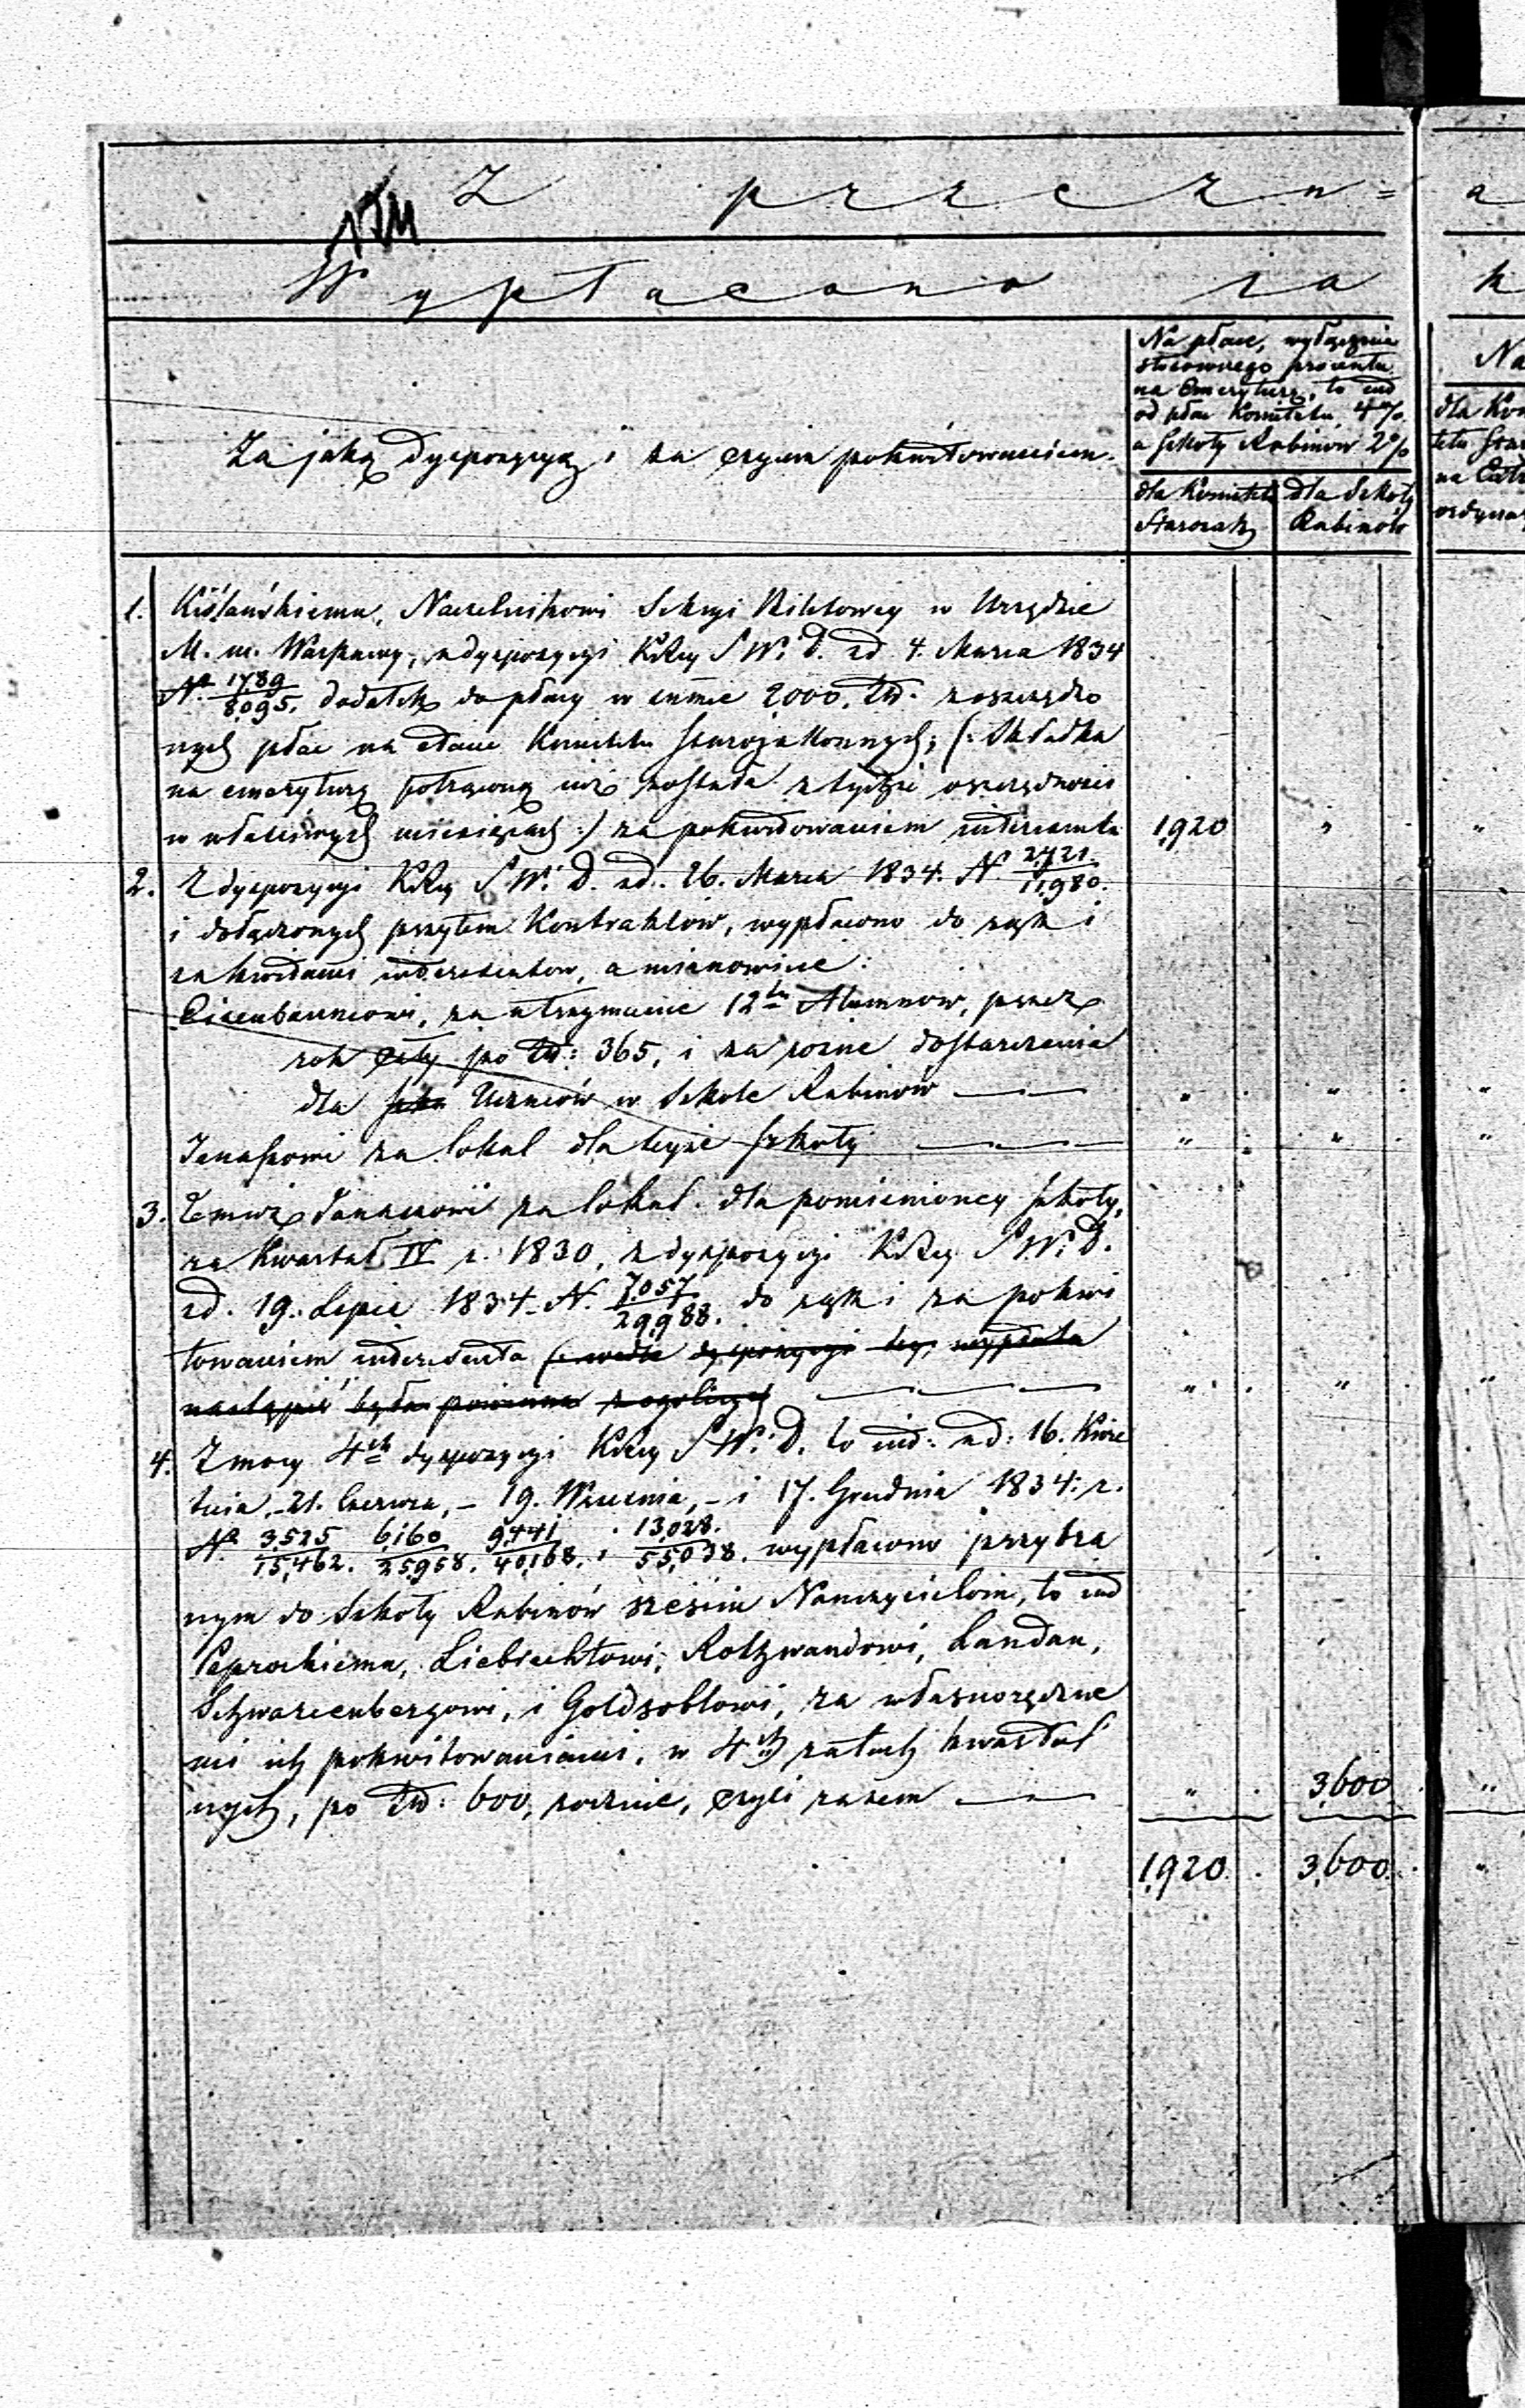 Z przezn=
Wypłacono za
Za jaką dyspozycyą i za czyim pokwitowaniem.
Na płace, wyłącznie
stosownego procentu
na Emeryturę, to iest
od płac Komitetu 4%
a Szkoły Rabinów 2%
dla Komitetu
Starozak
dla Szkoły
Rabinów
Na
1. Kiślańskiemu, Naczelnikowi Sekcyi Biletowey w Urzędzie
M. m. Warszawy, z dyspozycyi KRzy S W. i D. z d. 4. Marca 1834
N. 1789/8095. dodatek do płacy w summie 2000. Złł. z oszczędzo
nych płac na etacie Komitetu Starozakonnych; (: składka
na emeryturę potrąconą iuż została z tychże oszczędności
w właściwych miesiącach :) za pokwitowaniem interesenta 1,920 " "
2. Z dyspozycyi KRzy S W. i D. z d. 26. Marca 1834. N. 2,421/11,980.
i dołączonych przytem Kontraktów, wypłacono do rąk i
za kwitami interesentow, a mianowicie:
Eisenbaumowi, za utrzymanie 12tu Alumnow, przez
rok cały po Złł: 365, i za rożne dostarczenia
dla Uczniów w Szkole Rabinów " " "
Janaszowi za lokal dla teyże szkoły " " "
3. Temuż Janaszowi za lokal dla pomienioney szkoły,
za Kwartał IV r. 1830, z dyspozycyi KRzy S W. i D.
z d. 19. Lipca 1834 N. 7,057/29,988. do rąk i za pokwi
towaniem interesenta (: wedle dyspozycyi tey, wypłata
nastąpić była powinna z ogólnych " " "
4. Z mocy 4ch dyspozycyi KRzy S W. i D. to iest: z d: 16. Kwie
tnia, - 21. Czerwca, - 19. Września, - i 17. Grudnia 1834. r.
N. 3,525/15,462. 6,160/25,958. 9,441/40,168. i 13,028./55,038. wypłacono przybra
nym do Szkoły Rabinów sześciu Nauczycielom, to iest
Paprockiemu, Liebrechtowi, Rotzwandowi, Landau,
Schwarzenbergowi, i Goldsoblowi, za własnoręczne
mi ich pokwitowaniami, w 4ch ratach kwartal
nych, po Złł: 600, rocznie, czyli razem " 3,600 "
1,920. 3,600. "